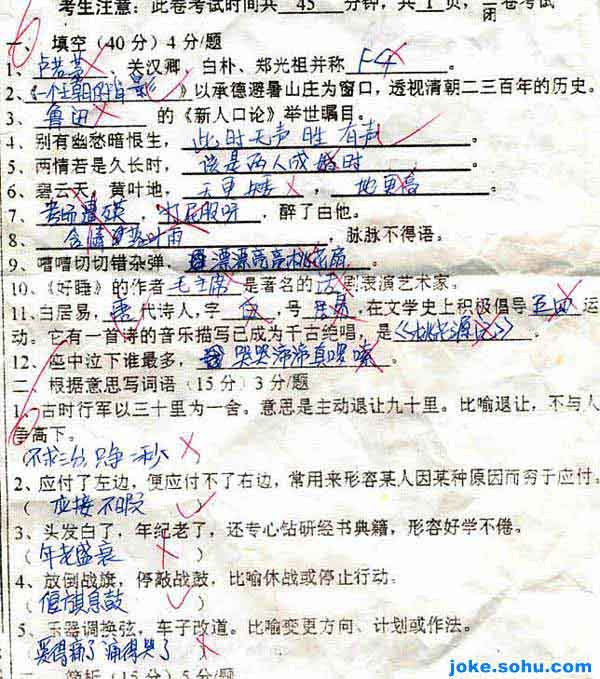 考生注意：此卷考试时间共 45 分钟，共 1 页，闭卷考试
一、填空（40分）4分/题
1、卢若蒙、关汉卿、白朴、郑光祖并称
2、《一个王朝的背影》以承德避暑山庄为窗口，透视清朝二三百年的历史。
3、鲁迅 的《新人口论》举世瞩目。
4、别有幽愁暗恨生，此时无声胜有声
5、两情若是久长时，该是两人成婚时。
6、碧云天，黄叶地，天更矮，地更高。
7、，，醉了由他。
8、，脉脉不得语。
9、嘈嘈切切错杂弹，漂漂亮亮桃花扇。
10、《好睡》的作者毛主席是著名的话剧表演艺术家。
11、白居易，唐代诗人，字 白，号居易，在文学史上积极倡导五四运
动。它有一首诗的音乐描写已成为千古绝唱，是《桃花源记》。
12、座中泣下谁最多，哭哭沸沸真啰嗦。
二、根据意思写词语（15分）3分/题
1、古时行军以三十里为一舍。意思是主动退让九十里。比喻退让，不与人
争高下。
（不求三分只争一秒
2、应付了左边，便应付不了右边，常用来形容某人因某种原因而穷于应付。
（ 应接不暇 ）
3、头发白了，年纪老了，还专心钻研经书典籍，形容好学不倦。
（ 年老盛衰 ）
4、放倒战旗，停敲战鼓，比喻休战或停止行动。
（ 偃旗息鼓 ）
5、乐器调换弦，车子改道。比喻变更方向、计划或作法。
爱得痛了痛得哭了
三、简析（15分）5分/题
joke.sohu.com